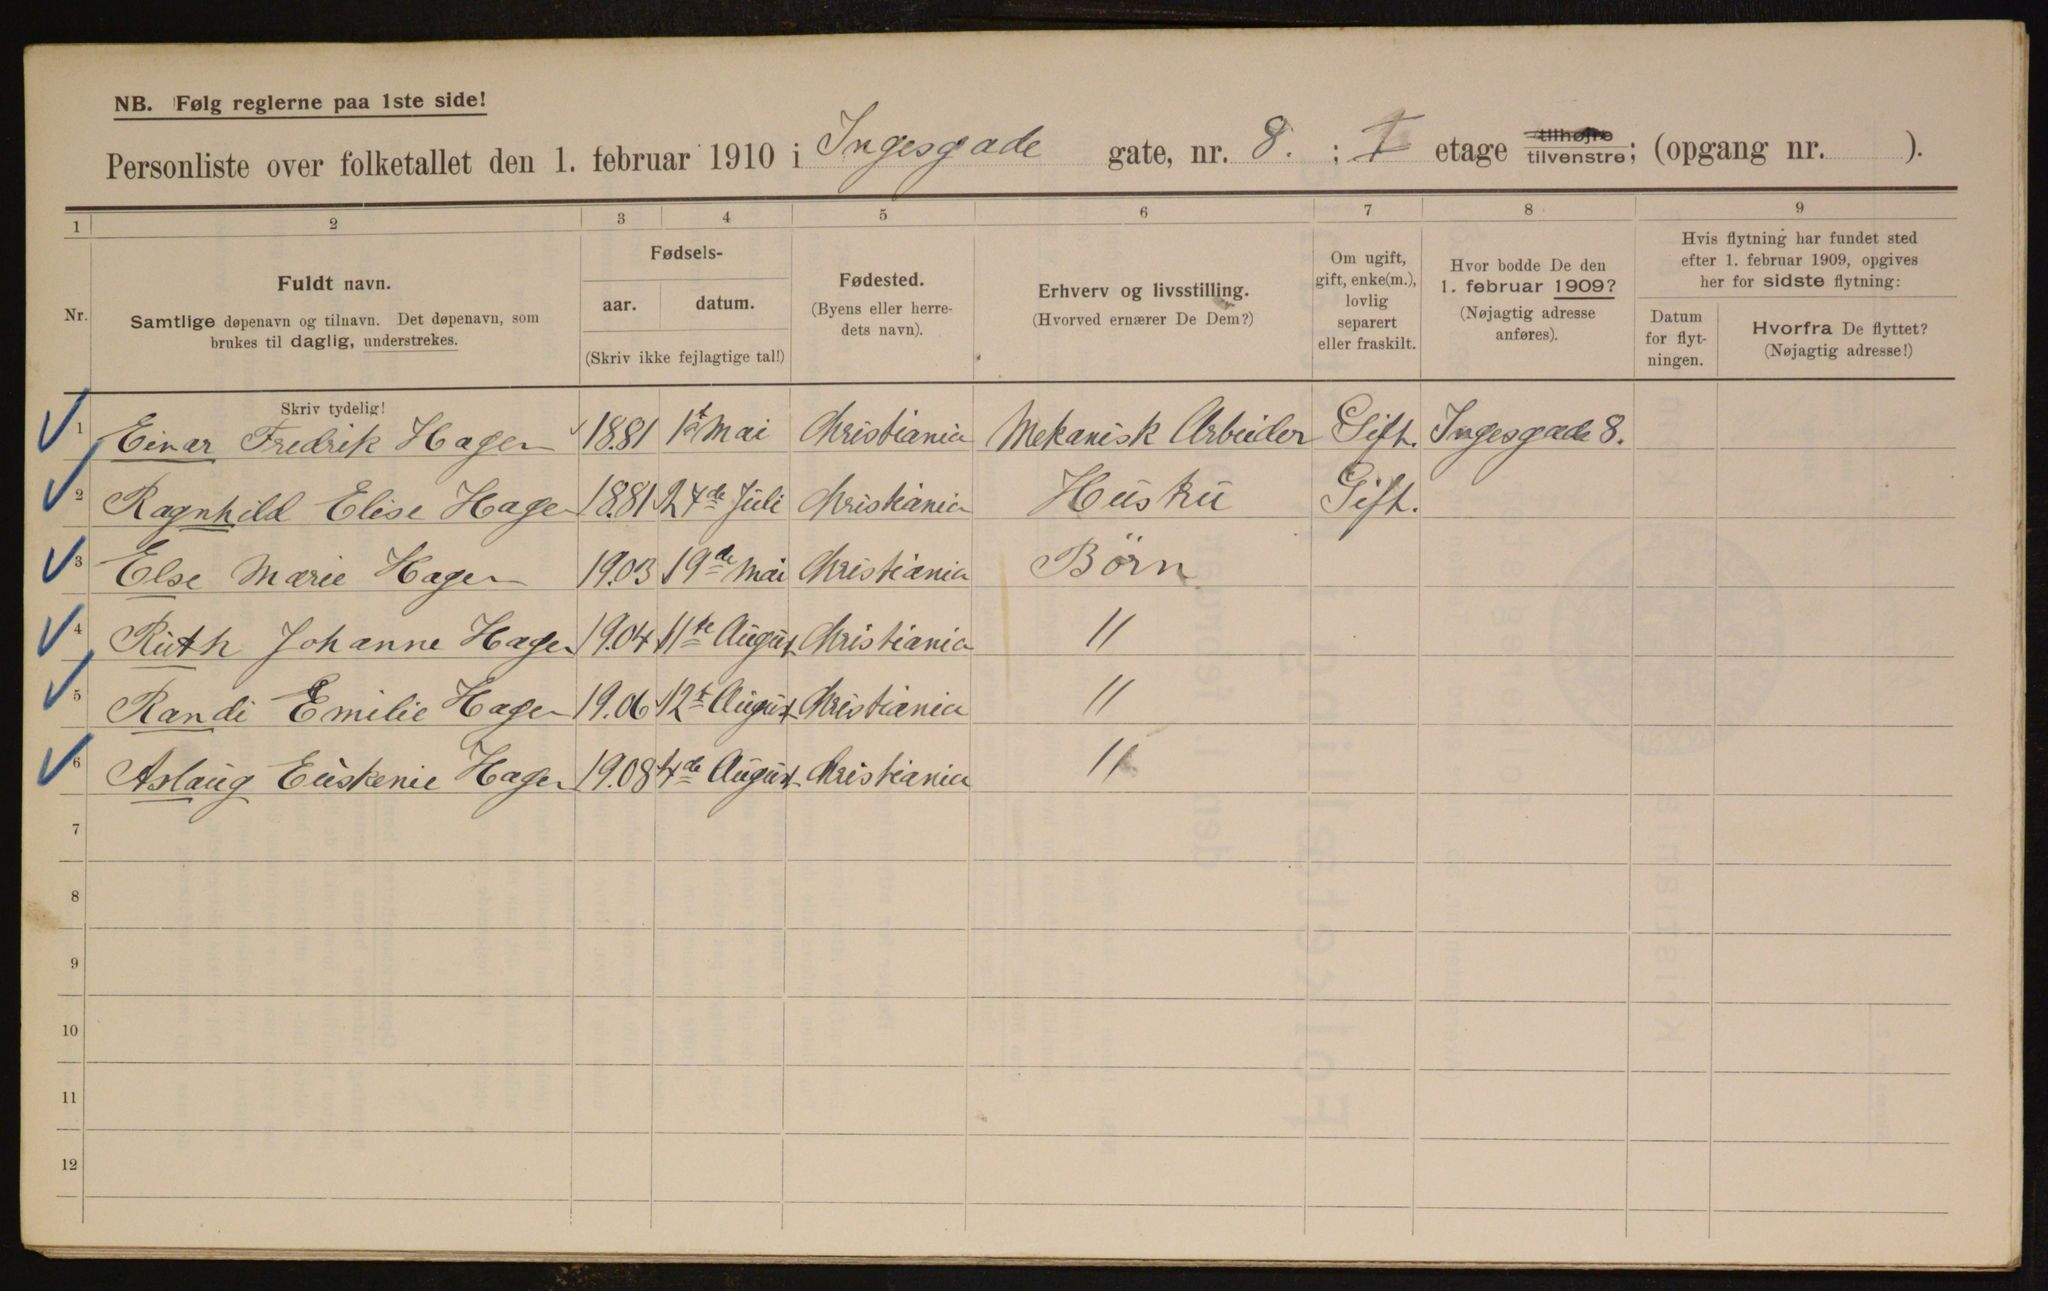 NB. Følg reglerne paa 1ste side!
Personliste over folketallet den 1. februar 1910 i Ingesgade gate, nr. 8. ; I etage tilhøjre tilvenstre; (opgang nr. ).
1 2 3 4 5 6 7 8 9
Nr.
Fuldt navn.
Samtlige døpenavn og tilnavn. Det døpenavn, som
brukes til daglig, understrekes.
Fødsels-
aar. datum.
(Skriv ikke fejlagtige tal!)
Fødested.
(Byens eller herre-
dets navn).
Erhverv og livsstilling.
(Hvorved ernærer De Dem?)
Om ugift,
gift, enke(m.),
lovlig
separert
eller fraskilt.
Hvor bodde De den
1. februar 1909?
(Nøjagtig adresse
anføres).
Hvis flytning har fundet sted
efter 1. februar 1909, opgives
her for sidste flytning:
Datum
for flyt-
ningen.
Hvorfra De flyttet?
(Nøjagtig adresse!)
Skriv tydelig!
1 Einar Fredrik Hagen 1881 1st Mai Christiania Mekanisk Arbeider Gift. Ingesgade 8.
2 Ragnhild Elise Hagen 1881 24de Juli Christiania Hustru Gift.
3 Else Marie Hagen 1903 19de Mai Christiania Børn
4 Ruth Johanne Hagen 1904 11te August Christiania "
5 Randi Emilie Hagen 1906 12t August Christiania "
6 Aslaug Euskenie Hagen 1908 4de August Christiania "
7
8
9
10
11
12